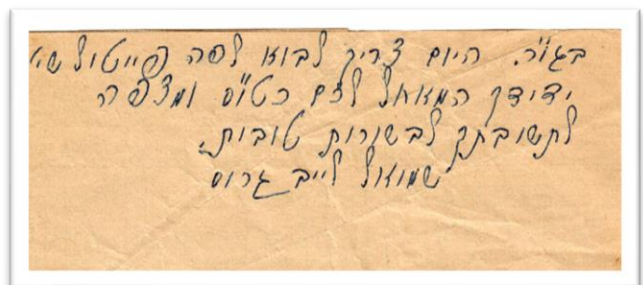 בגו"ר. היום צריך לבוא לפה פייטול שי'
ידידך המאחל לכם כטו"ס ומצפה
לתשובתך לבשורות טובות.
שמואל לייב גרוס